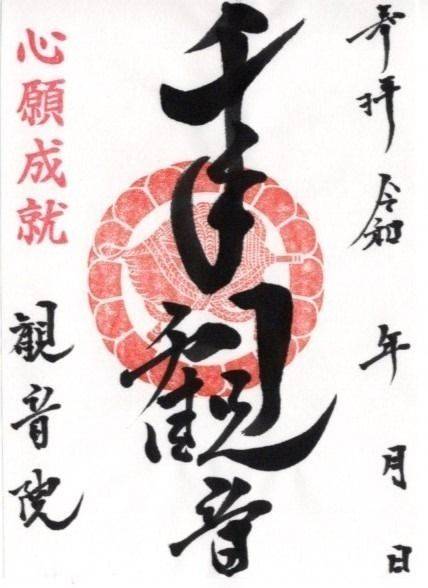 参拝 令和 年 月 日
千手観音
心願成就
観音院